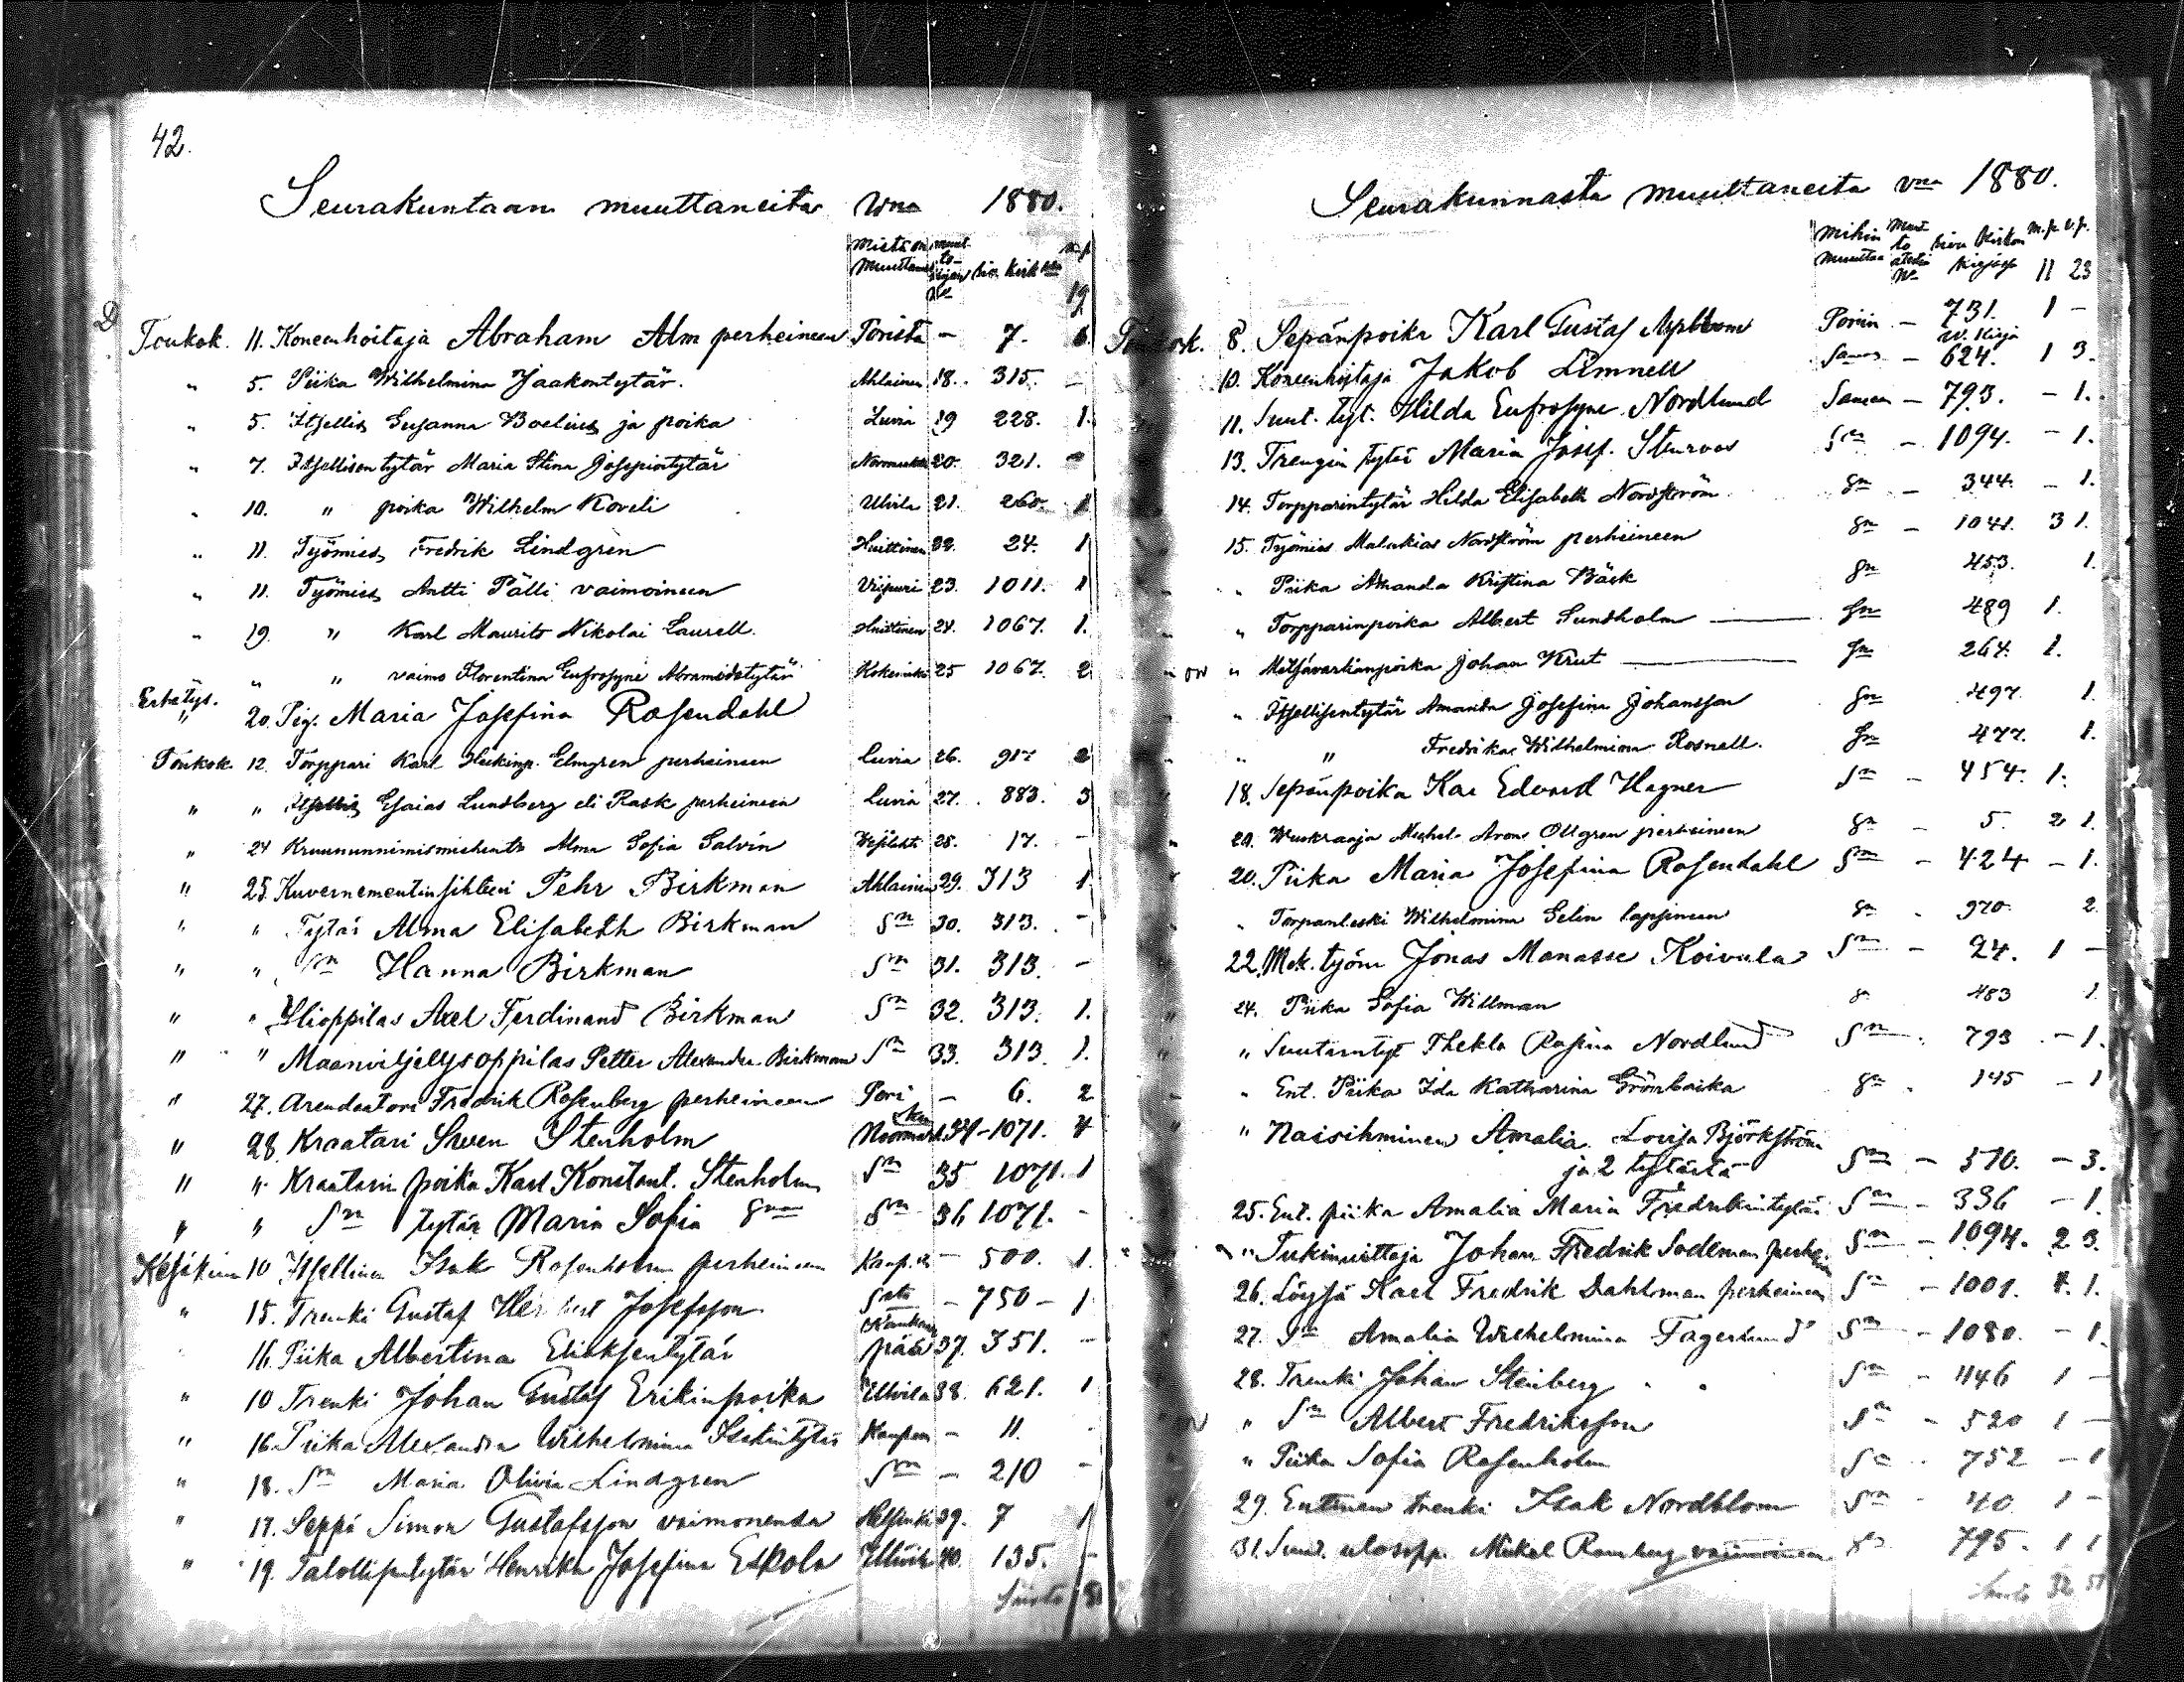 42.
Seurakuntaan muuttaneita Vna 1880.
Mistä on muuttanut
Toukok. 11. Koneenhoitaja Abraham Alm perheineen Porista – 7. 6
" 5. Piika Wilhelmina Jaakontytär. Ahlainen 18. 315. –
" 5. Itsellis Susanna Boelius ja poika Luvia 19 228. 1.
" 7. Itsellisentytär Maria Stina Josepintytär 20. 321. –
" 10. " poika Wilhelm Koveli Ulvila 21. 260. 1
" 11. Työmies Fredrik Lindgren Huittinen 22. 24. 1
" 11. Työmies Antti Pälli vaimoineen Viipuri 23. 1011. 1
" 19. " Karl Maurits Nikolai Laurell. Huittinen 24. 1067. 1.
" " vaimo Florentina Eufrosyne Abramintytär 25 1067. 2
" 20. Maria Josefina Rosendahl
Toukok. 12. Torppari Karl Heikinp. Elmgren perheineen Luvia 26. 917 2
" " Esaias Lundberg eli Rask perheineen Luvia 27. 883. 3
" 24 Alma Sofia Salvin 28. 17. –
" 25. Kuvernementinsihteeri Pehr Birkman Ahlainen 29. 313 1
" " Tytär Alma Elisabeth Birkman Sm 30. 313. –
" " Sm Hanna Birkman Sm 31. 313. –
" " Ylioppilas Axel Ferdinand Birkman Sm 32. 313. 1.
" " Maanviljelysoppilas Petter Alexander Birkman Sm 33. 313. 1.
" 27. Arendaatori Fredrik Rosenberg perheineen Pori – 6. 2
" 28. Kraatari Sven Stenholm 34 – 1071. 4
" " Kraatarin poika Karl Konstant. Stenholm Sm 35 1071. 1
" " Sm tytär Maria Sofia Sm 36 1071. –
Kesäkuu 10 Itsellinen Isak Rosenholm perheineen – 500. 1.
" 15. Trenki Gustaf Josefsson – 750 – 1
16. Piika Albertina 37. 351. –
" 10 Trenki Johan Gustaf Erikinpoika Ulvila 38. 621. 1
" 16. Piika Alexandra Wilhelmina Isakintytär – 11.
" 18. Sm Maria Olivia Lindgren Sm – 210 –
" 17. Seppä Simon Gustafsson vaimonensa Helsinki 39. 7 1
" 19. Talollisentytär Henrika Josefina Eskola Ulvila 40. 135. –
Seurakunnasta muuttaneita vna 1880.
Mihin muuttaa m.p. v.p.
11 23
8. Sepänpoika Karl Gustaf Poriin – 731. 1 –
10. Koneenhoitaja Jakob Limnell Samaan – 624. 1 3.
11. Suut. tyt. Hilda Eufrosyne Nordlund Samaan – 793. – 1.
13. Trengin tytär Maria Josef. Sm – 1094. – 1.
14. Torpparintytär Hilda Elisabeth Nordström Sm – 344. – 1.
15. Työmies Malakias Nordström perheineen Sm – 1041. 3 1.
" Piika Amanda Kristina Bäck Sm 453. 1.
" Torpparinpoika Albert Sundholm Sm 489 1.
" Metsävartianpoika Johan Krut Sm 264. 1.
" Itsellisentytär Amanda Josefina Johansson Sm 497. 1.
" " Fredrika Wilhelmina Rosnell. Sm 477. 1.
18. Sepänpoika Edvard Hagner Sm – 454. 1.
20. Ollgren perheineen Sm – 5. 2 1.
20. Piika Maria Josefina Rosendahl Sm – 424 – 1.
" Wilhelmina Selin lapsineen Sm 970. 2.
22. Mek. työm Jonas Manasse Koivula Sm – 24. 1 –
24. Piika Sofia Willman S 483 1.
" Suutarintyt Thekla Rosina Nordlund Sm 793 – 1.
" Ent. Piika Ida Katharina Sm 145 – 1
" Naisihminen Amalia Lovisa Björkström
ja 2 tytärtä Sm – 570. – 3.
25. Ent. piika Amalia Maria Fredrikintytär Sm – 336 – 1.
" Johan Fredrik Sodeman Sm – 1094. 2 3.
26. Löysä Karl Fredrik Dahlman perheineen Sm – 1001. 4. 1.
27. Sm Amalia Wilhelmina Fagerlund Sm – 1080. – 1.
28. Trenki Johan Stenberg Sm – 1146 1 –
" Sm Albert Fredriksson Sm – 520 1 –
" Piika Sofia Rosenholm Sm 752 – 1
29. Entinen trenki Isak Nordblom Sm – 40. 1 –
31. Mikel Ramberg vaimoineen Sm 795. 1 1